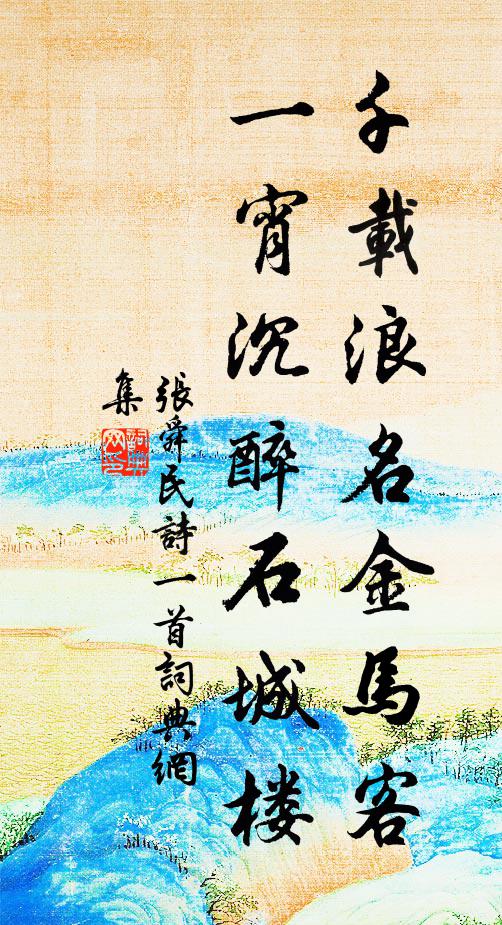 千載浪名金馬客
一宵沉醉石城楼
張舜民詩一首詞典網
集